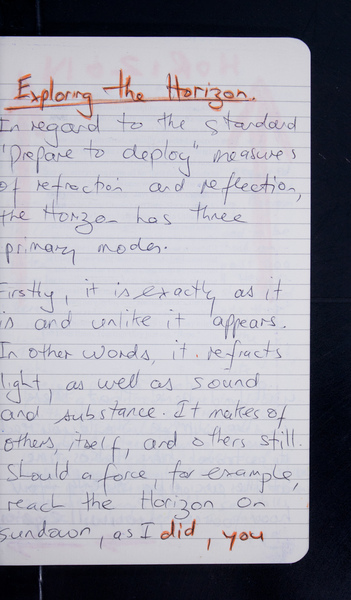 Exploring the Horizon.
In regard to the standard
"prepare to deploy" measures
of refraction and reflection,
the Horizon has three
primary modes.
Firstly, it is exactly as it
is and unlike it appears.
In other words, it refracts
light, as well as sound
and substance. It makes of
others, itself, and others still.
Should a force, for example,
reach the Horizon on
sundown, as I did, you